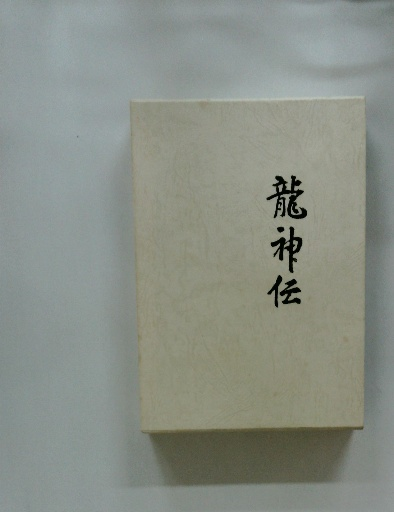 龍神伝